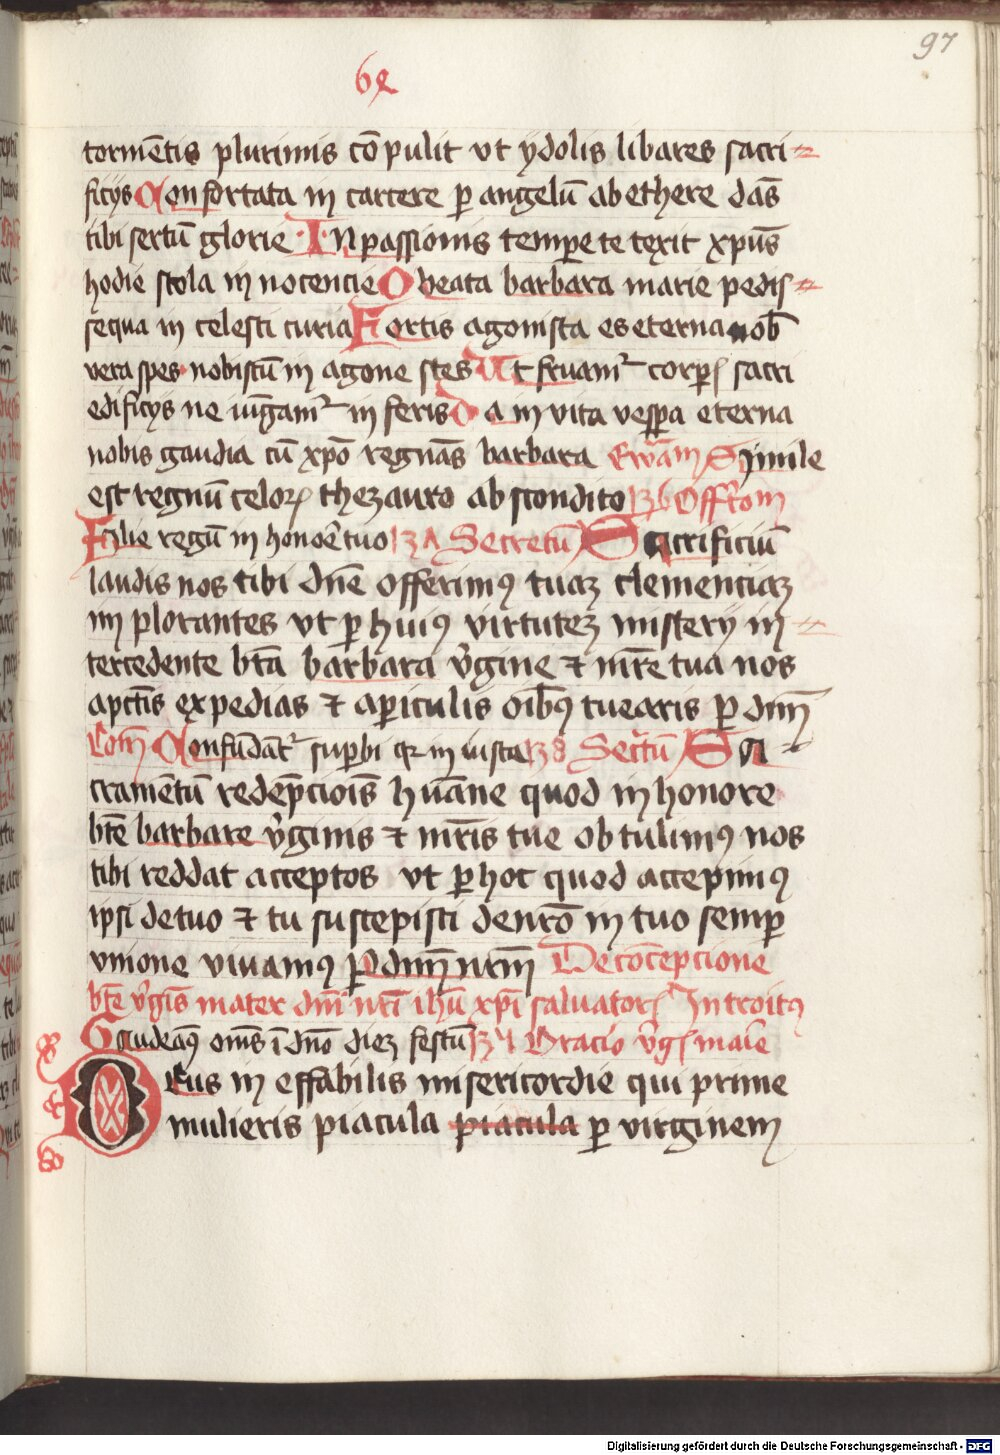 97
tormētis plurimis cōpulit vt ydolis libares sacri=
ficijs Confortata in carcere p angelū ab ethere dās
tibi sertū glorie In passionis tempe te texit xp̄us
hodie stola in nocencie O beata barbara marie pedis=
sequa in celesti curia Fortis agonista es eterna nob̄
vera spes nobiscū in agone stes Ut fruam² corpis sacri
edificijs ne iūgam² in feris Da in vita vespa eterna
nobis gaudia cū xp̄o regnās barbara Ewām Simile
est regnū celoꝝ thezauro abscondito Offrtom
Filie regū in honoē tuo Secretū Sacrificiū
laudis nos tibi dn̄e offerimꝰ tuaz clementiaz
in plorantes vt p huiꝰ virtutez misterij in=
tercedente bt̄a barbara v̄gine ⁊ mr̄e tua nos
a pct̄is expedias ⁊ a piculis oib̄ꝰ tuearis p dnm̄
Com̄ Confūdāt² supbi qr in iuste Sectū Sa
cramētū redēpcioīs hūane quod in honore
bt̄e barbare v̄ginis ⁊ mr̄is tue obtulimꝰ nos
tibi reddat acceptos vt p hoc quod accepimꝰ
ipsi de tuo ⁊ tu suscepisti de nr̄o in tuo semp
vnione viuamꝰ p dnm̄ nrm̄ De cōcepcione
bt̄e v̄gīs mater dnī nrī ihū xp̄i saluatoꝝ Introitꝰ
Gaudeaꝰ om̄s ī dn̄o diez festū Oracio v̄g maie
Deus in effabilis misericordie qui prime
mulieris piacula piacula p virginem
Digitalisierung gefördert durch die Deutsche Forschungsgemeinschaft - DFG